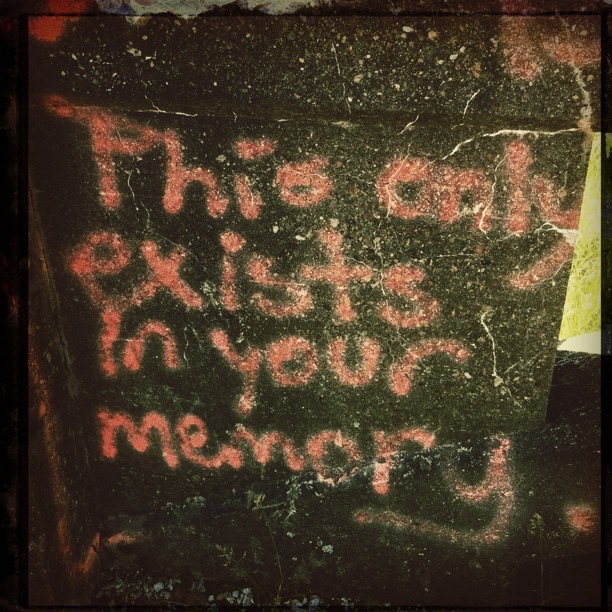 This only
exists
in your
memory